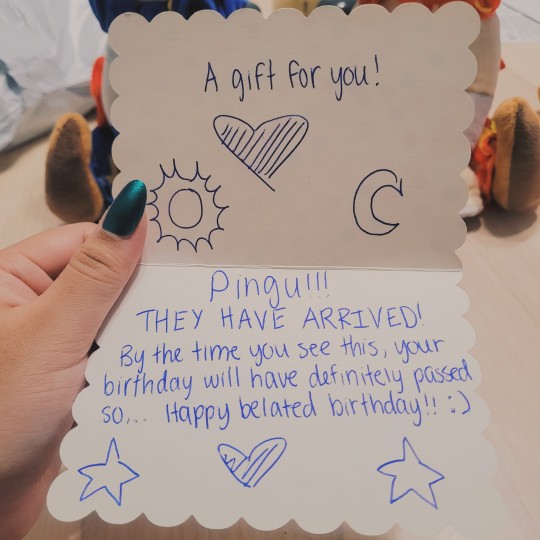 A gift for you!
Pingu!!!
THEY HAVE ARRIVED!
By the time you see this, your
birthday will have definitely passed
so... Happy belated birthday!! :)